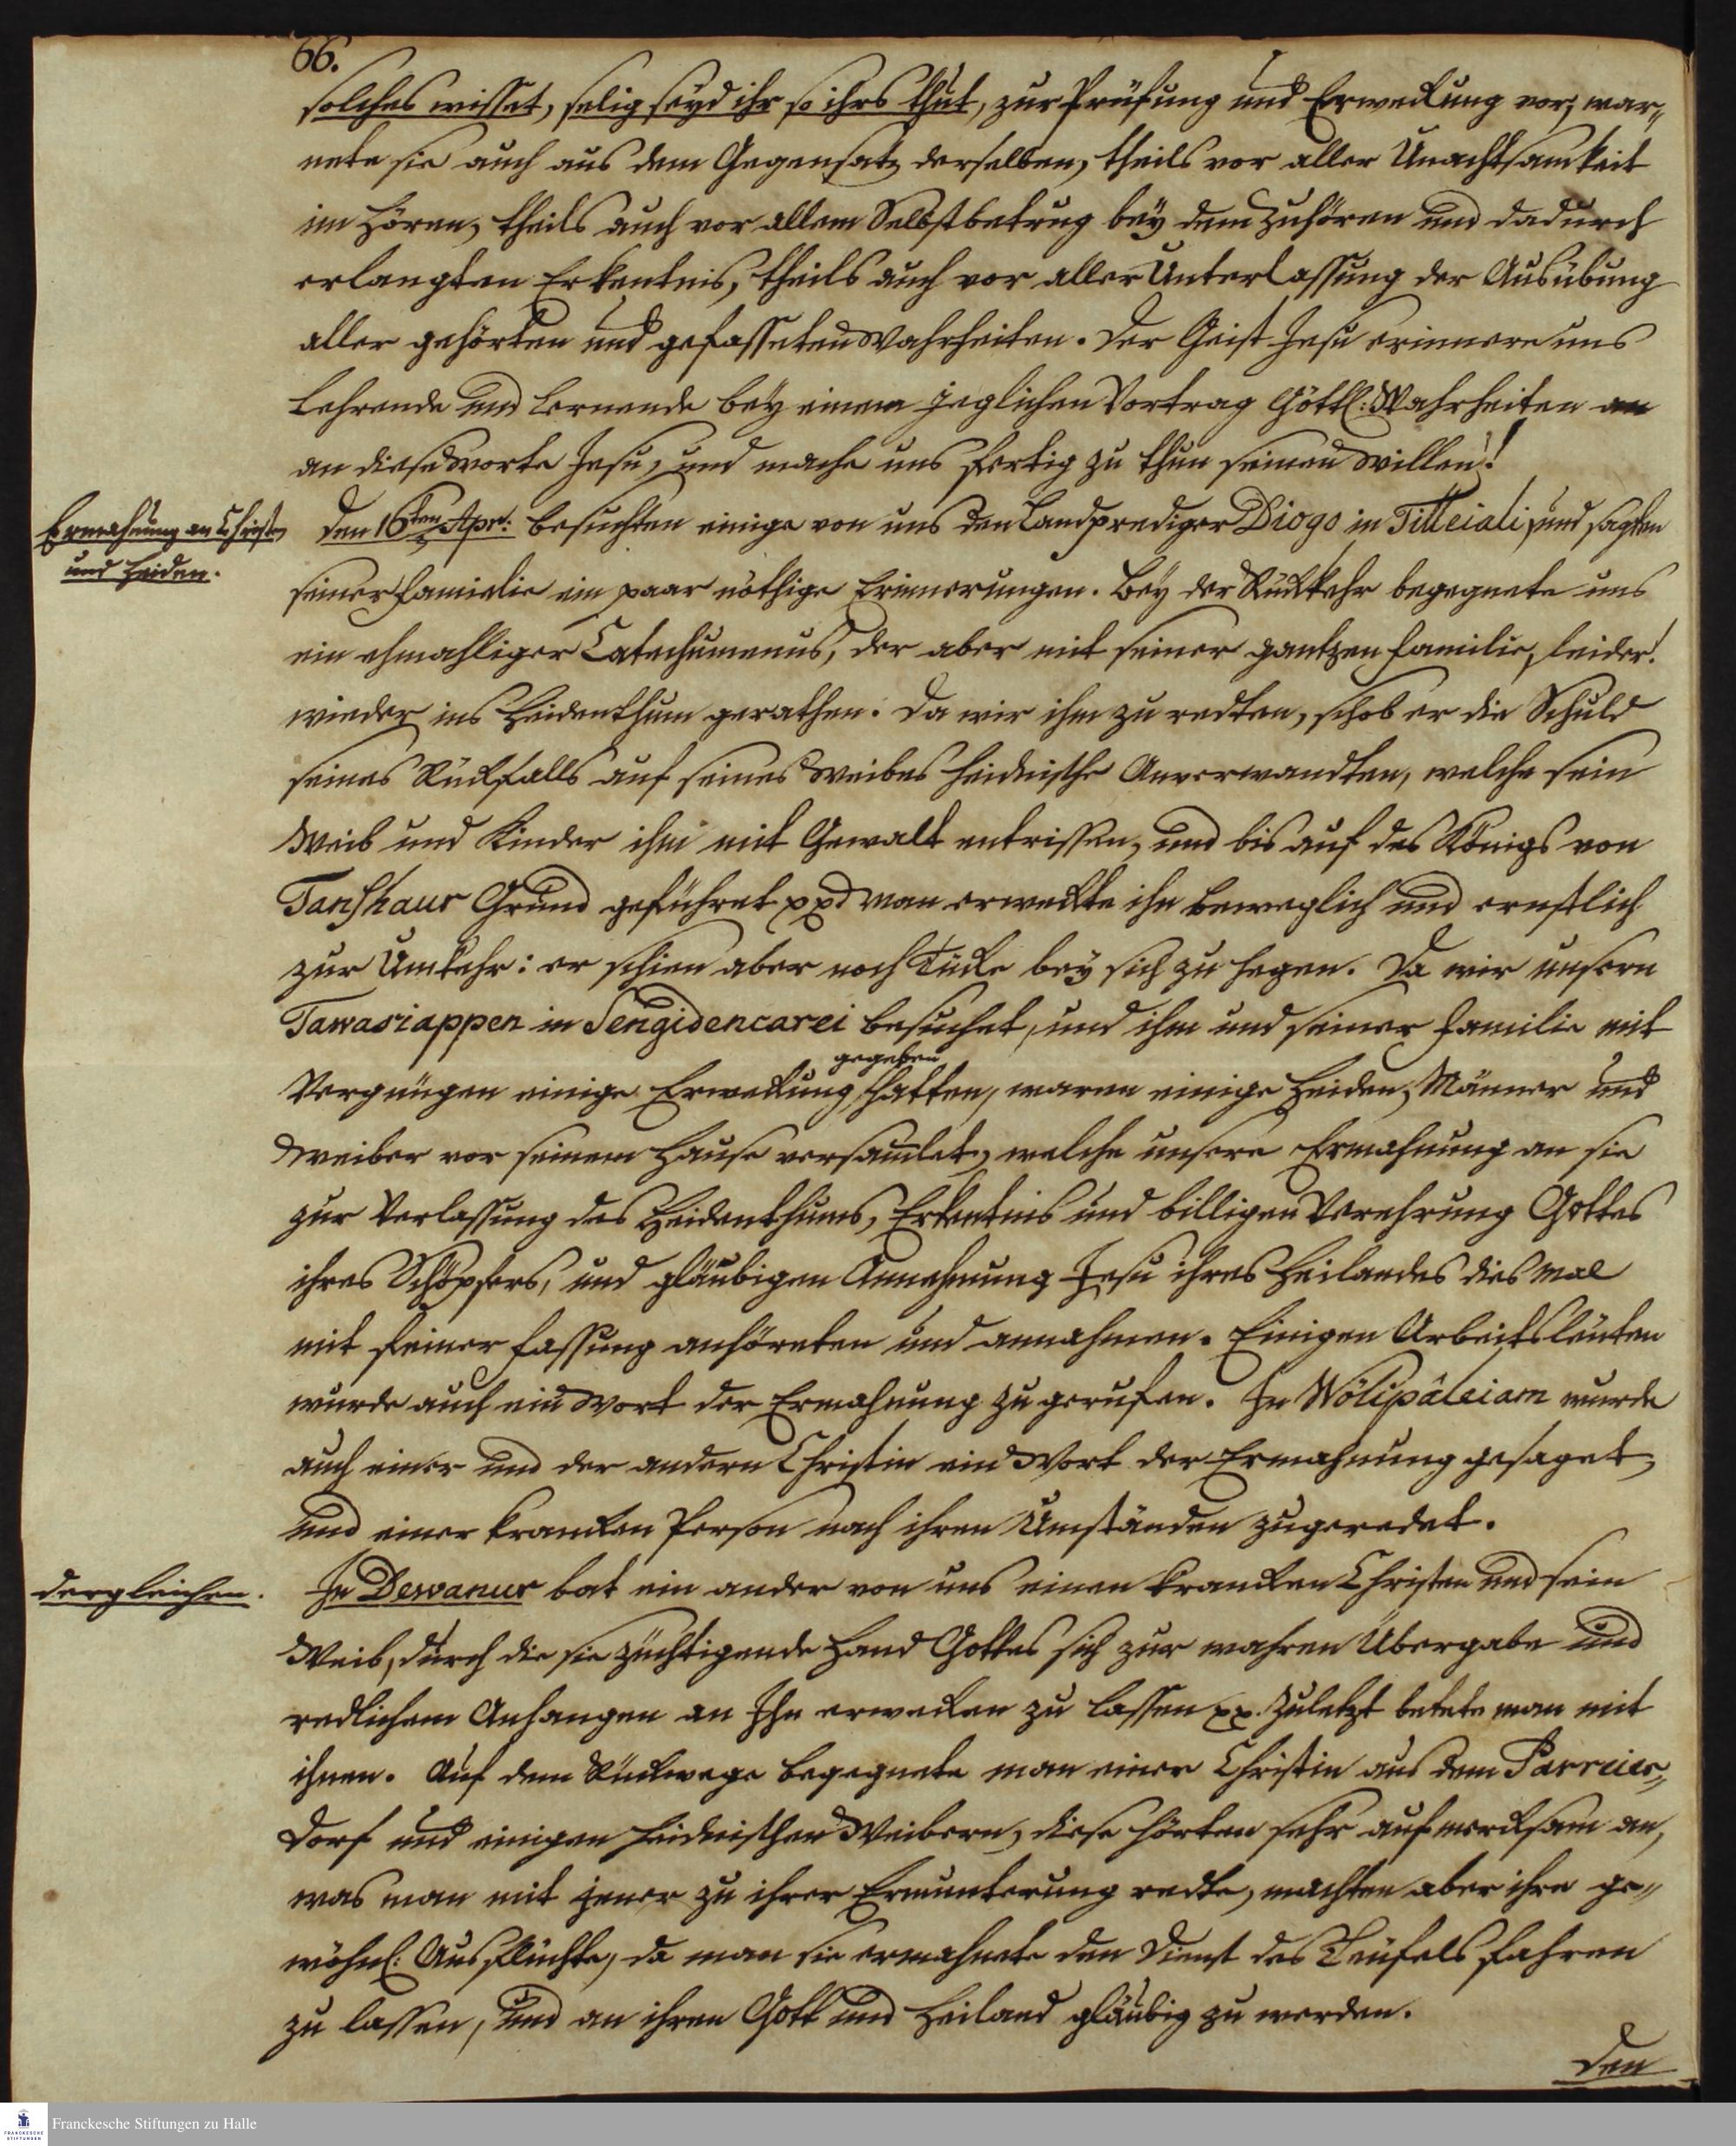 66.
solches wisset, selig seyd ihr so ihrs thut, zur Prüfung und Erweckung vor, war„
nete sie auch aus dem Gegensatz derselben, theils vor aller Unachtsamkeit
im Hören, theils auch vor allem Selbstbetrug bey dem Zuhören und dadurch
erlangten Erkentnis, theils auch vor aller Unterlassung der Ausübung
aller gehörten und gefasseten Wahrheiten. Der Geist Jesu erinnere uns
Lehrende und Lernende bey einem jeglichen Vortrag Göttl: Wahrheiten an
an diese Worte Jesu, und mache uns fertig zu thun seinen Willen!
Ermahnung an Christen
und Heiden.
den 16ten Apr: besuchten einige von uns den Landprediger Diogo in Tilleiali, und sagten
seiner Familie ein paar nöthige Erinnerungen. Bey der Rückkehr begegnete uns
ein ehmahliger Catechumenus, der aber mit seiner gantzen Familie, leider!
wieder ins Heidenthum gerathen. Da wir ihm zu redten, schob er die Schuld
seines Rückfalls auf seines Weibes heidnische Anverwandten, welche sein
Weib und Kinder ihm mit Gewalt entrissen, und bis auf des Königs von
Tanshaur Grund geführet pp man erweckte ihn beweglich und ernstlich
zur Umkehr: er schien aber noch Tücke bey sich zu hegen. Da wir unsern
Tawasiappen in Sengidencarei besuchet, und ihm und seiner Familie mit
gegeben
Vergnügen einige Erweckung hatten, waren einige Heiden, Männer und
Weiber vor seinem Hause versamlet, welche unsere Ermahnung an sie
zur Verlassung des Heidenthums, Erkentnis und billigen Verehrung Gottes
ihres Schöpfers, und gläubigen Annehmung Jesu ihres Heilandes dies mal
mit feiner Fassung anhöreten und annahmen. Einigen Arbeitsleuten
wurde auch ein Wort der Ermahnung zugerufen. In Wölipâleiam wurde
auch einer und der andern Christin ein Wort der Ermahnung gesaget,
und einer krancken Person nach ihren Umständen zugeredet.
dergleichen.
In Dewanur bat ein ander von uns einen krancken Christen und sein
Weib, durch die sie züchtigende Hand Gottes sich zur wahren Übergabe und
redlichem Anhangen an Ihn erwecken zu lassen pp. Zuletzt betete man mit
ihnen. Auf dem Rückwege begegnete man einer Christin aus dem Parreier„
Dorf und einigen heidnischen Weibern, diese hörten sehr aufmercksam an,
was man mit jener zu ihrer Ermunterung redte, machten aber ihre ge„
wöhnl: Ausflüchte, da man sie ermahnete den Dienst des Teufels fahren
zu lassen, und an ihren Gott und Heiland gläubig zu werden.
den
Franckesche Stiftungen zu Halle
FRANCKESCHE
STIFTUNGEN